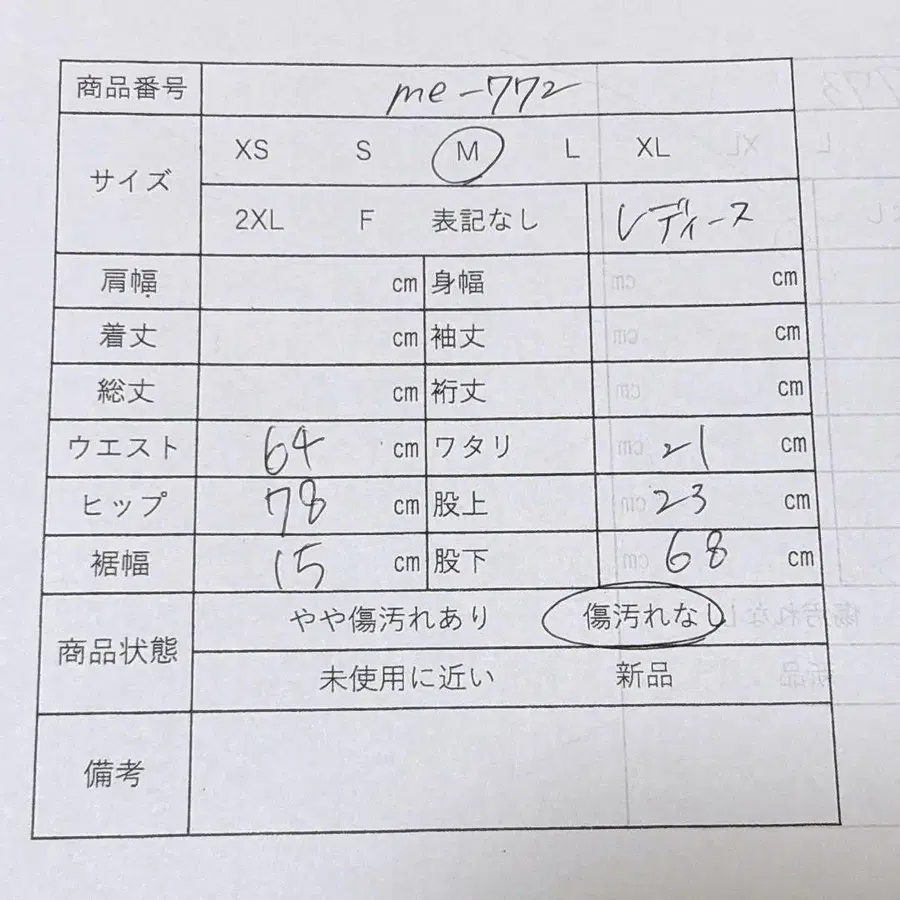 商品番号 me-772
サイズ XS S M L XL
2XL F 表記なし レディース
肩幅 cm 身幅 cm
着丈 cm 袖丈 cm
総丈 cm 裄丈 cm
ウエスト 64 cm ワタリ 21 cm
ヒップ 78 cm 股上 23 cm
裾幅 15 cm 股下 68 cm
商品状態 やや傷汚れあり 傷汚れなし
未使用に近い 新品
備考